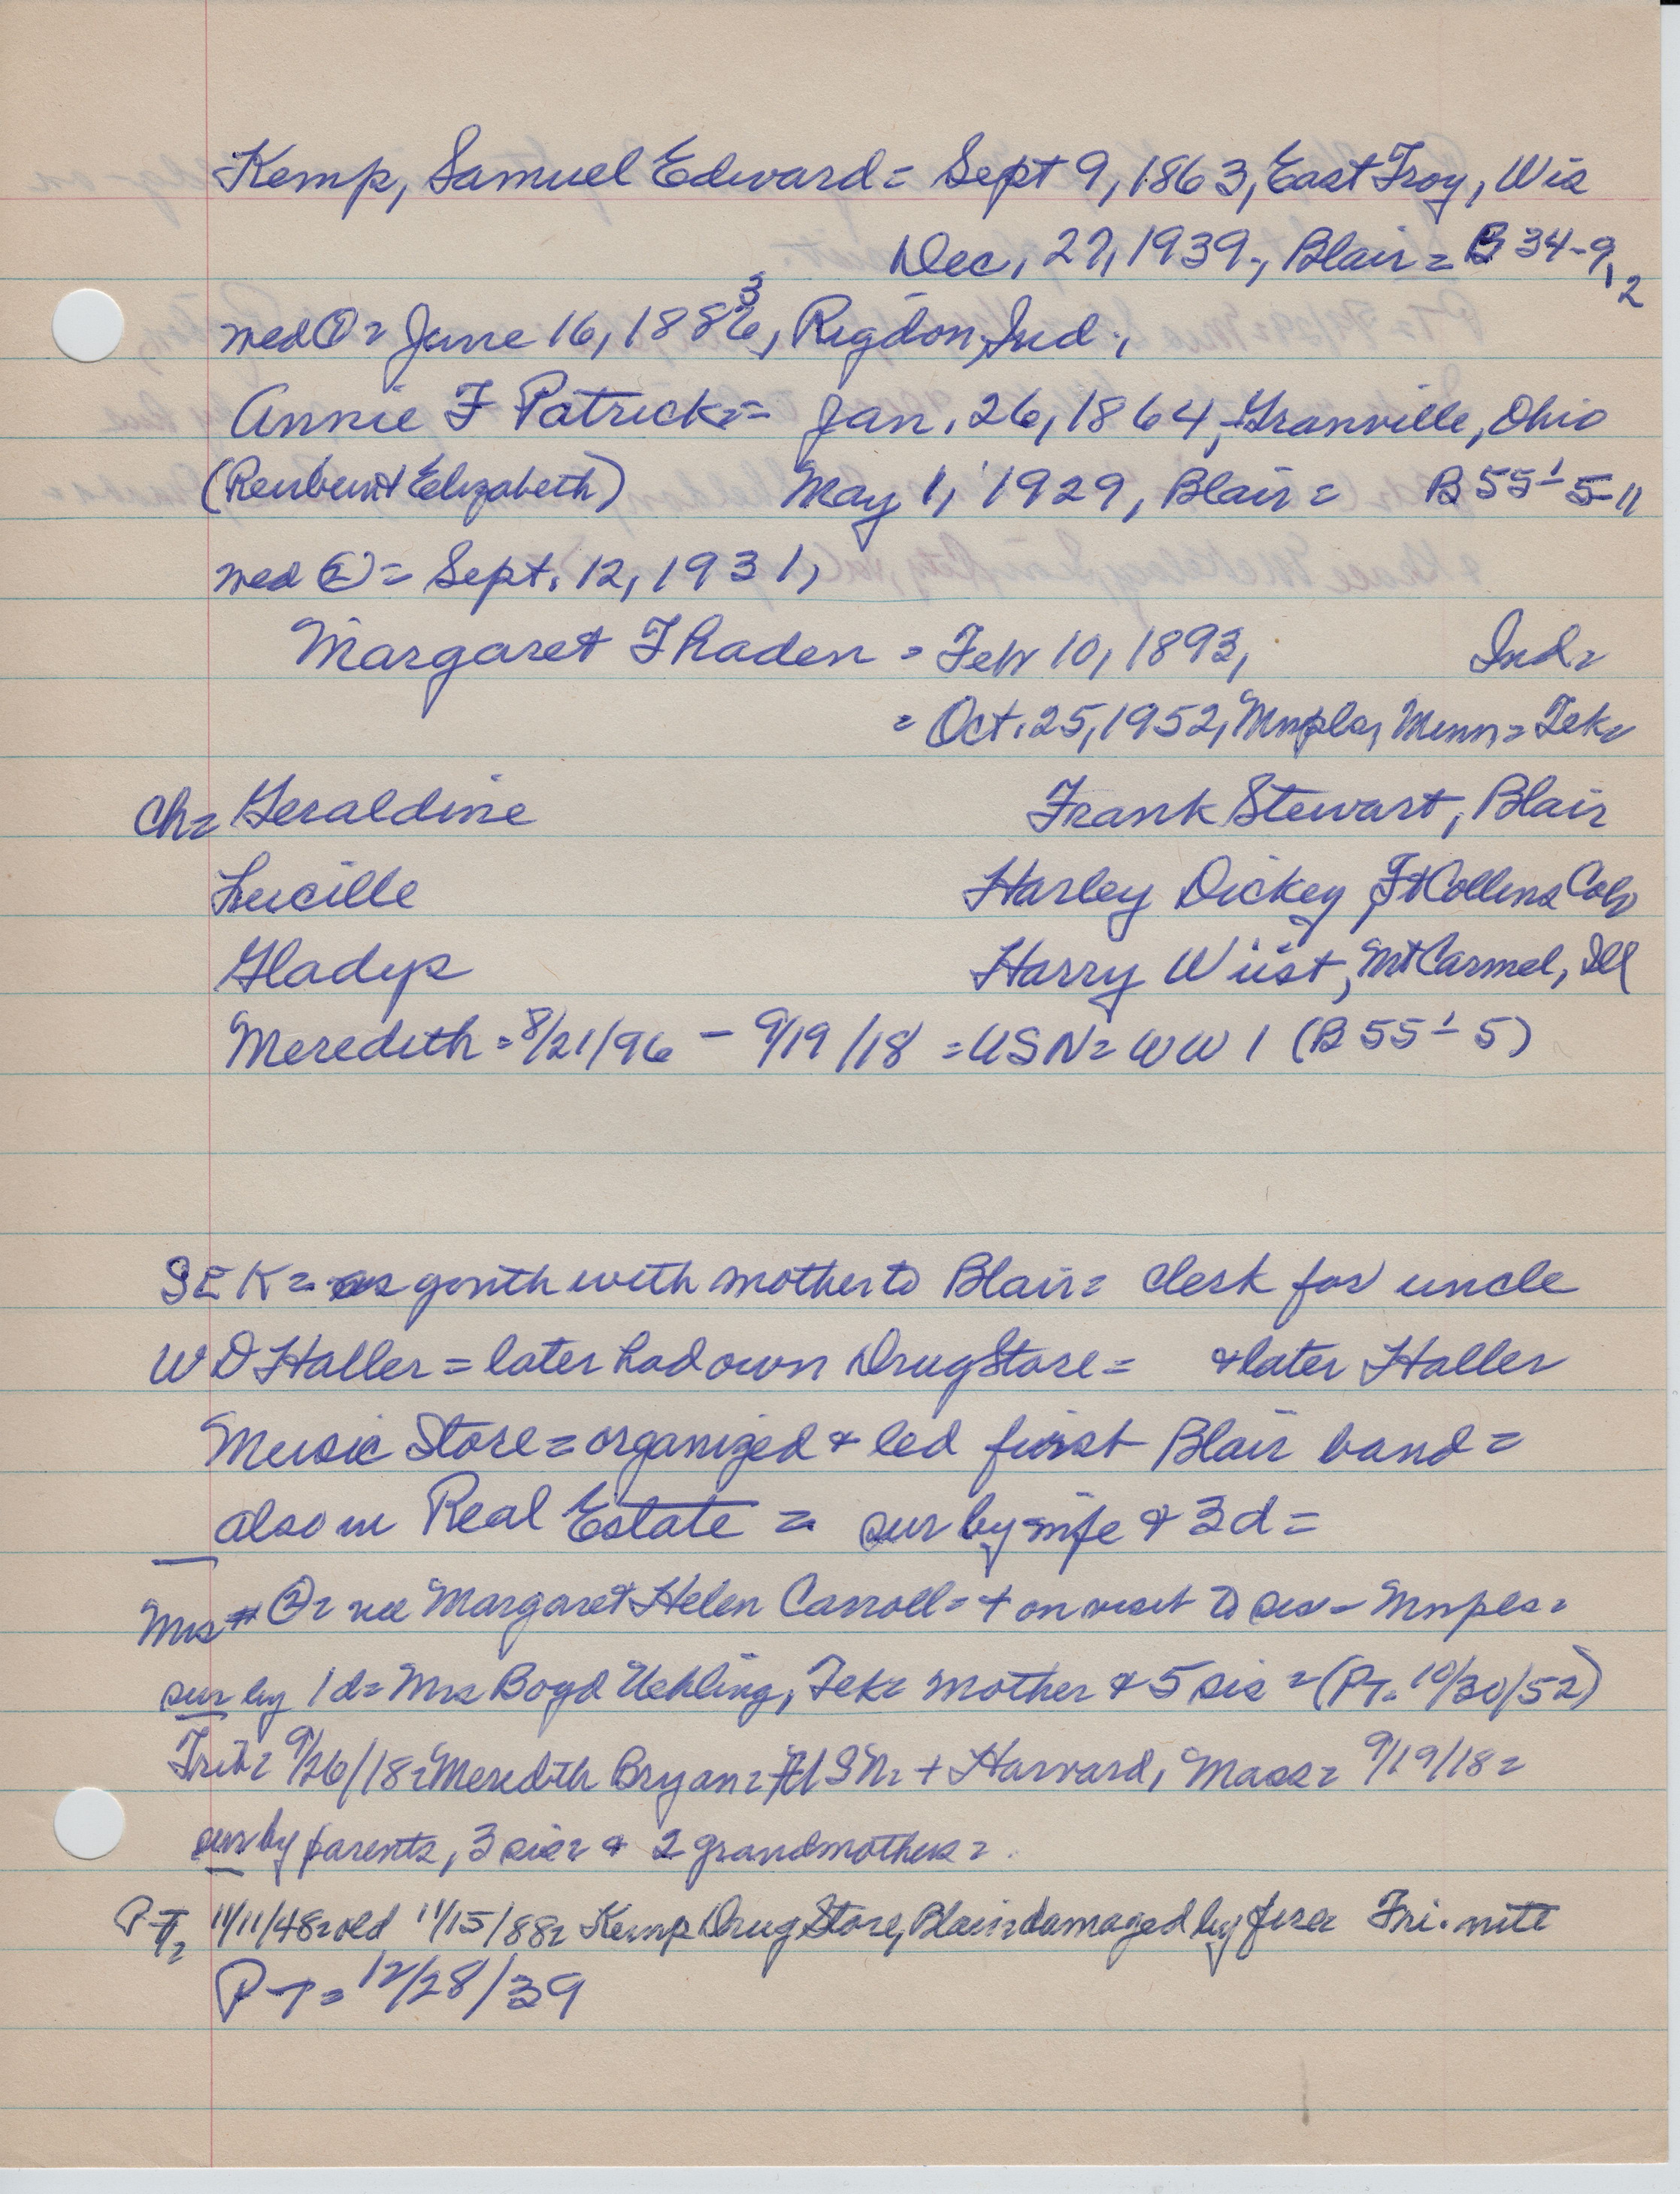 Kemp, Samuel Edward = Sept 9, 1863, East Troy, Wis
Dec, 27, 1939., Blair = B 34-9,2
wed ① = June 16, 1886 3, Rigdon, Ind.,
Annie F Patrick = Jan. 26, 1864, Granville, Ohio
(Reuben & Elizabeth) May 1, 1929, Blair = B 55 1 5-11
wed ② = Sept. 12, 1931,
Margaret Thaden = Feb 10, 1893, Ind =
= Oct. 25, 1952, Mnpls, Minn = Tek =
Ch = Geraldine Frank Stewart, Blair
Lucille Harley Dickey, Ft Collins Colo
Gladys Harry Wiist, Mt Carmel, Ill
Meredith = 8/21/96 - 9/19/18 = USN = WW 1 (B 55 1 5)
SEK = as youth with mother to Blair = clerk for uncle
WD Haller = later had own Drug Store = & later Haller
Music Store = organized & led first Blair band =
also in Real Estate = sur by wife & 3d =
Mrs # ② = nee Margaret Helen Carroll = + on visit to sis - Mnpls =
sur by 1d = Mrs Boyd Uehling, Tek = mother & 5 sis = (PT. 10/30/52)
Trib = 9/26/18 = Meredith Bryan = USN = + Harvard, Mass = 9/19/18 =
sur by parents, 3 sis = & 2 grandmothers = .
PT = 11/11/48 = old 11/15/88 = Kemp Drug Store, Blair = damaged by fire Fri. nite
PT = 12/28/39